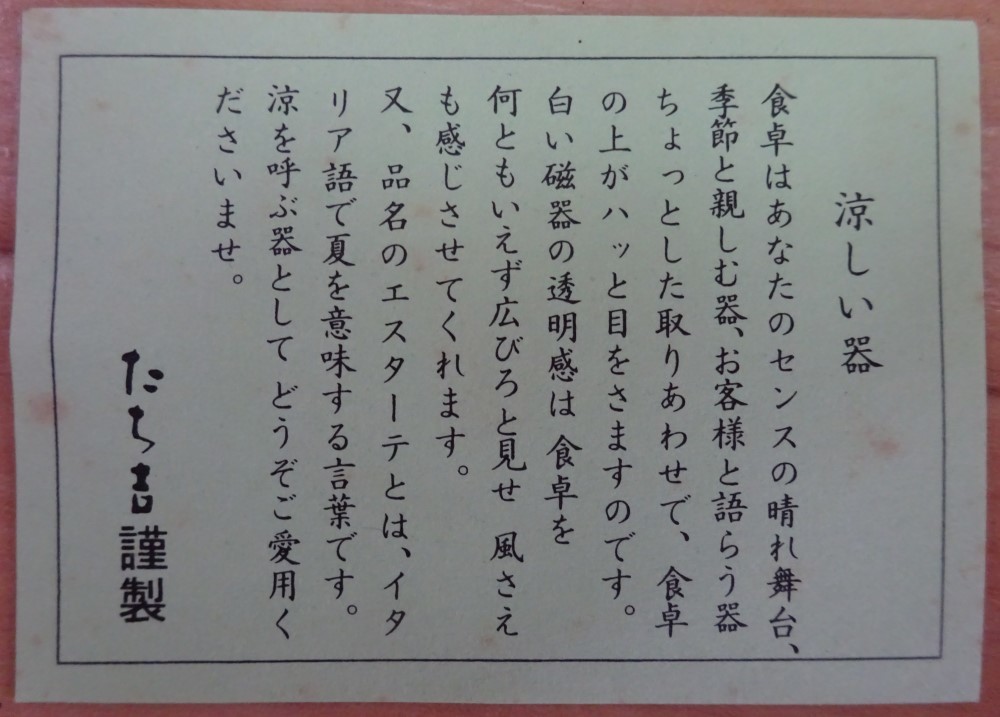 涼しい器
食卓はあなたのセンスの晴れ舞台、
季節と親しむ器、お客様と語らう器
ちょっとした取りあわせで、食卓
の上がハッと目をさますのです。
白い磁器の透明感は 食卓を
何ともいえず広びろと見せ 風さえ
も感じさせてくれます。
又、品名のエスターテとは、イタ
リア語で夏を意味する言葉です。
涼を呼ぶ器として どうぞご愛用く
ださいませ。
たち吉謹製